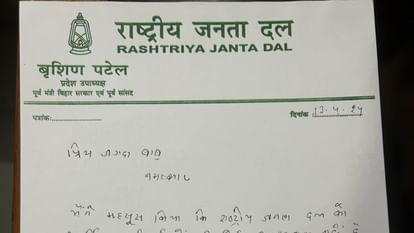 राष्ट्रीय जनता दल
RASHTRIYA JANTA DAL
बृशिण पटेल
प्रदेश उपाध्यक्ष
पूर्व मंत्री बिहार सरकार एवं पूर्व सांसद
पत्रांकः
दिनांकः 13.4.24
प्रिय जगदा बाबू
नमस्कार
मैंने महसूस किया कि राष्ट्रीय जनता दल को